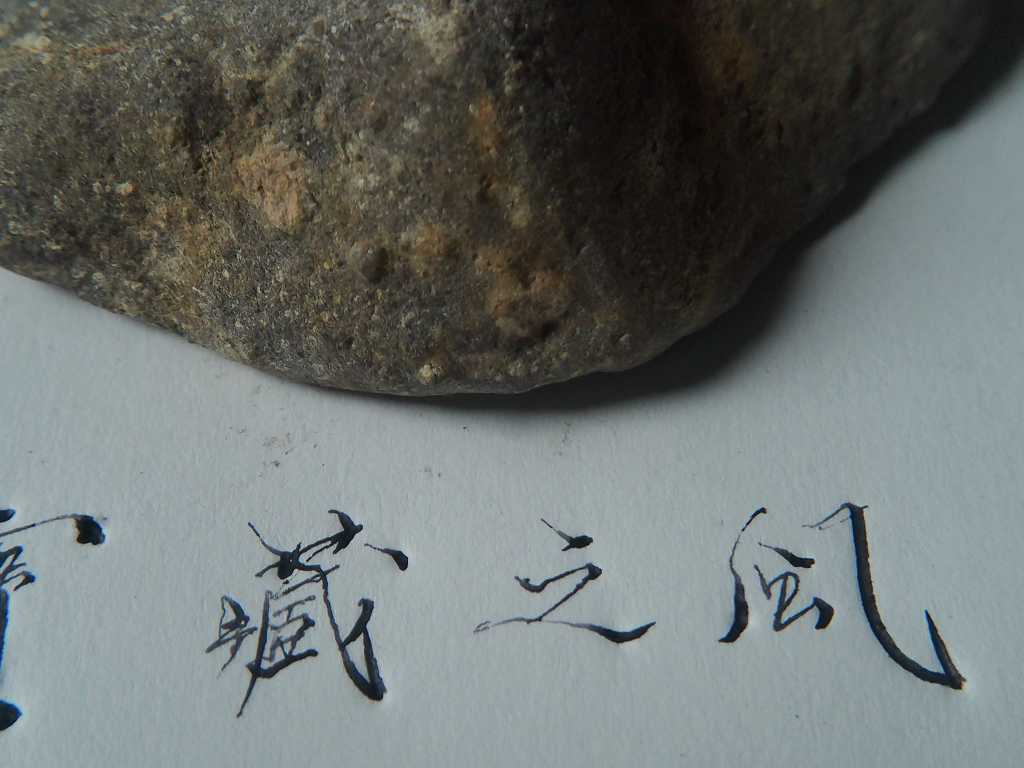 藏之風